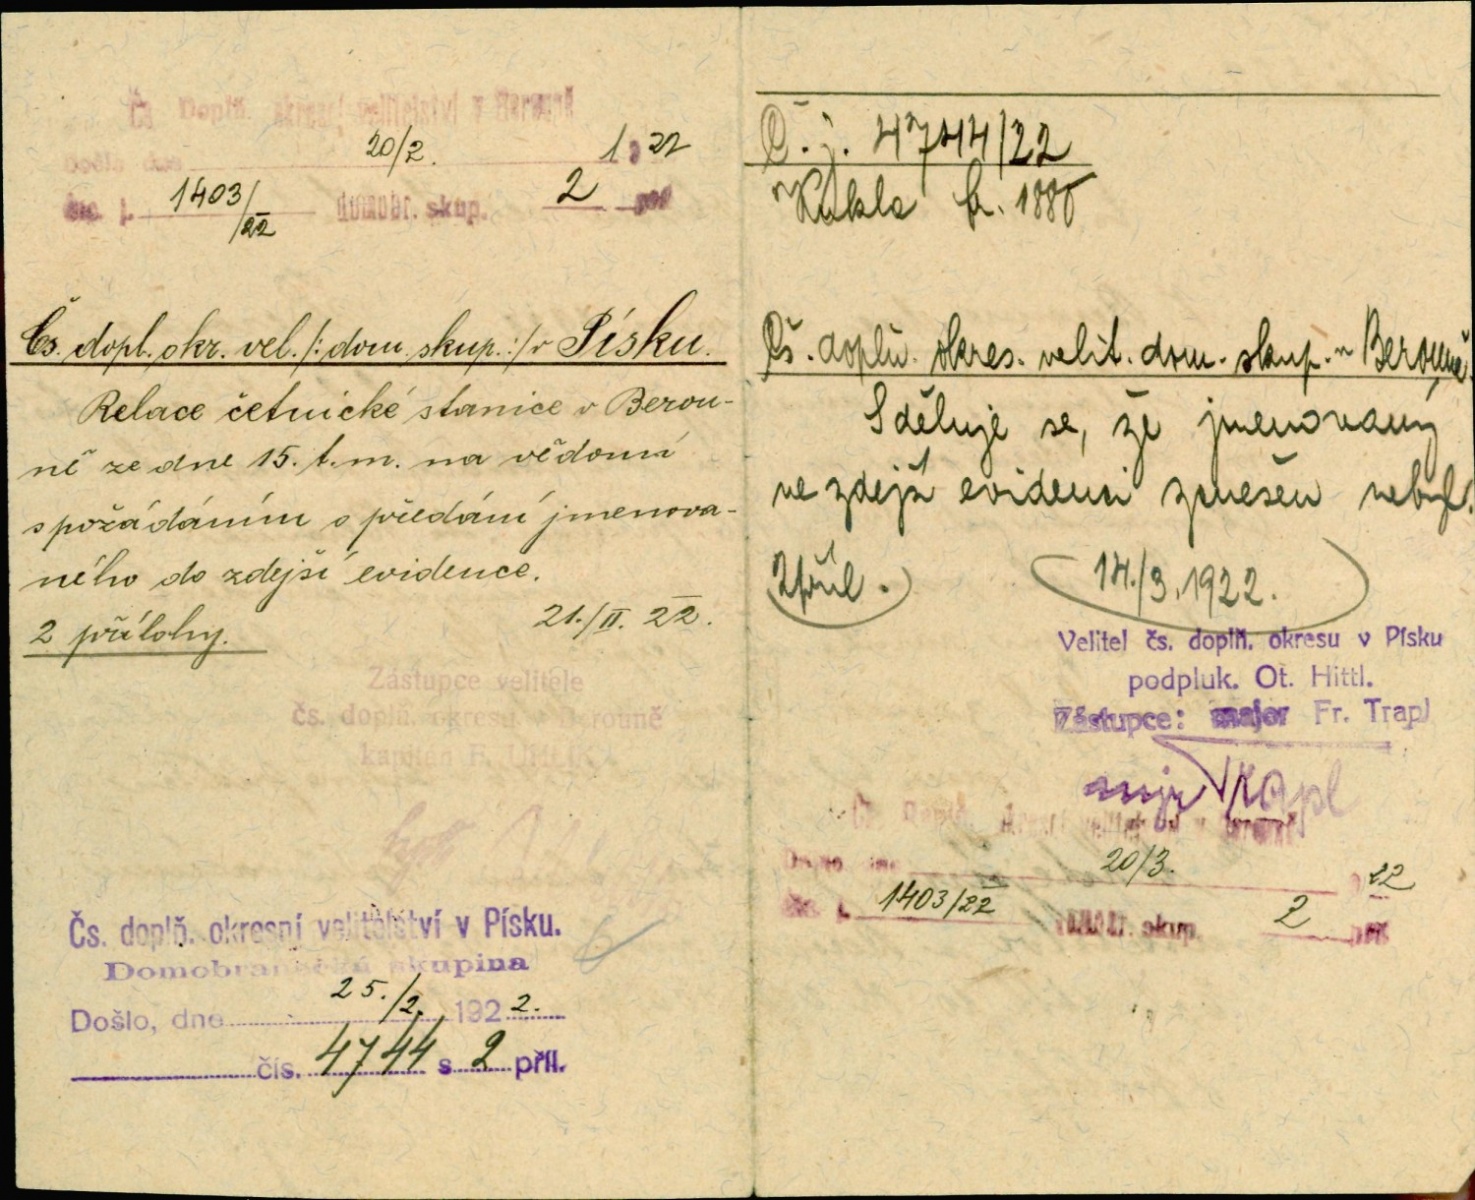 Čs. Doplň. okresní velitelství v Berouně
Došlo dne 20/2. 1922
čís. j. 1403/22 domobr. skup. 2 příl
Čs. dopl. okr. vel. /: dom. skup. :/ v Písku.
Relace četnické stanice v Berou-
ně ze dne 15. t. m. na vědomí
s požádáním o předání jmenova-
ného do zdejší evidence.
2 přílohy. 21./II. 22.
Zástupce velitele
čs. doplň. okresu v Berouně
kapitán F. UHLÍK
Čs. doplň. okresní velitelství v Písku.
Domobranecká skupina
Došlo, dne 25./2. 1922.
čís. 4744 s 2 příl.
Č. j. 4744/22
Kukla 1880
Čs. doplň. okres. velit. dom. skup. v Berouně.
Sděluje se, že jmenovaný
ve zdejší evidenci zjištěn nebyl.
2 příl. 14./3. 1922.
Velitel čs. doplň. okresu v Písku
podpluk. Ot. Hittl.
Zástupce: major Fr. Trapl
mjr Trapl
Čs. Doplň. okresní velitelství v Berouně
Došlo dne 20/3. 22
čís. j. 1403/22 domobr. skup. 2 příl